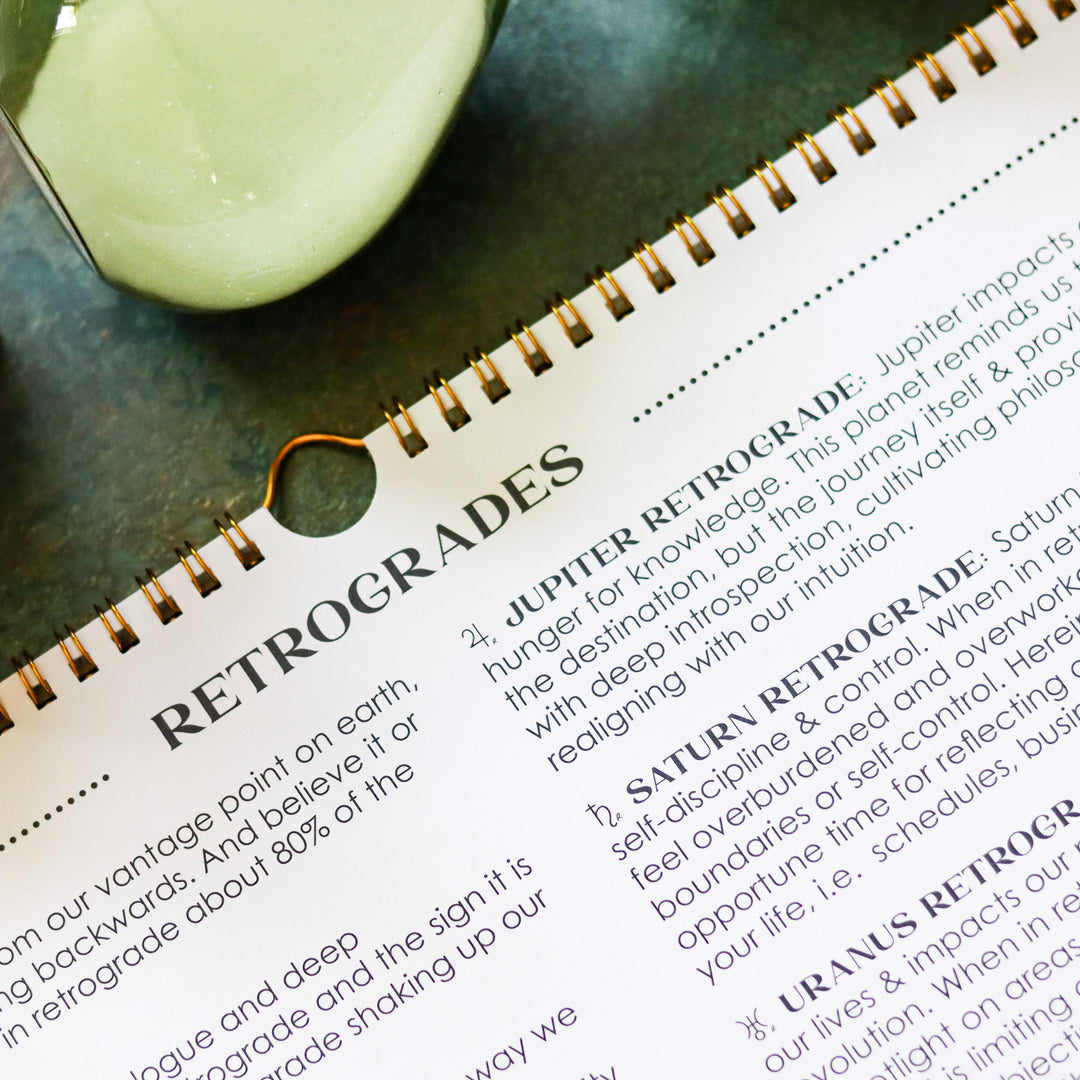 RETROGRADES
om our vantage point on earth,
ng backwards. And believe it or
in retrograde about 80% of the
logue and deep
rograde and the sign it is
grade shaking up our
way we
♃ JUPITER RETROGRADE: Jupiter impacts
hunger for knowledge. This planet reminds us
the destination, but the journey itself & provi
with deep introspection, cultivating philoso
realigning with our intuition.
♄ SATURN RETROGRADE: Saturn
self-discipline & control. When in ret
feel overburdened and overwork
boundaries or self-control. Herein
opportune time for reflecting
your life, i.e. schedules, busin
♅ URANUS RETROGR
our lives & impacts our
volution. When in ret
otlight on areas
is limiting
bjecti